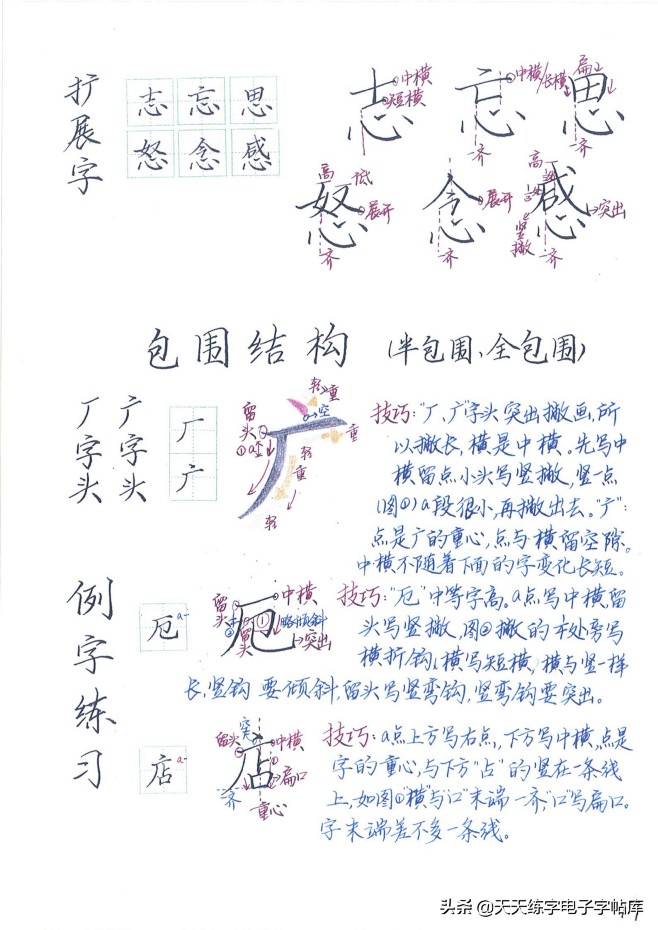 扩展字
志 忘 思
怒 念 感
志 中横 短横
忘 中横 齐
思 长横 扁 齐
怒 高 低 展开 齐
念 展开 齐
感 高 竖撇 突出 齐
包围结构 (半包围、全包围)
厂字头
广字头
厂
广
留头 a 空 轻 重 重
轻 重
轻
技巧:“厂、广”字头突出撇画,所
以撇长,横是中横。先写中
横留点小头写竖撇,竖一点
(图①)a段很小,再撇出去。“广”:
点是广的重心,点与横留空隙。
中横不随着下面的字变化长短。
例字练习
厄 a
留头 中横 略倾斜 突出 留头
技巧:“厄”中等字高。a点写中横留
头写竖撇,图②撇的本处旁写
横折钩(横写短横),横与竖一样
长,竖钩要倾斜,留头写竖弯钩,竖弯钩要突出。
店 a
留头 中横 扁口 齐 重心
技巧:a点上方写右点,下方写中横,点是
字的重心,与下方“占”的竖在一条线
上,如图①“横”与“口”末端一齐,“口”写扁口。
字末端差不多一条线。
头条 @天天练字电子字帖库